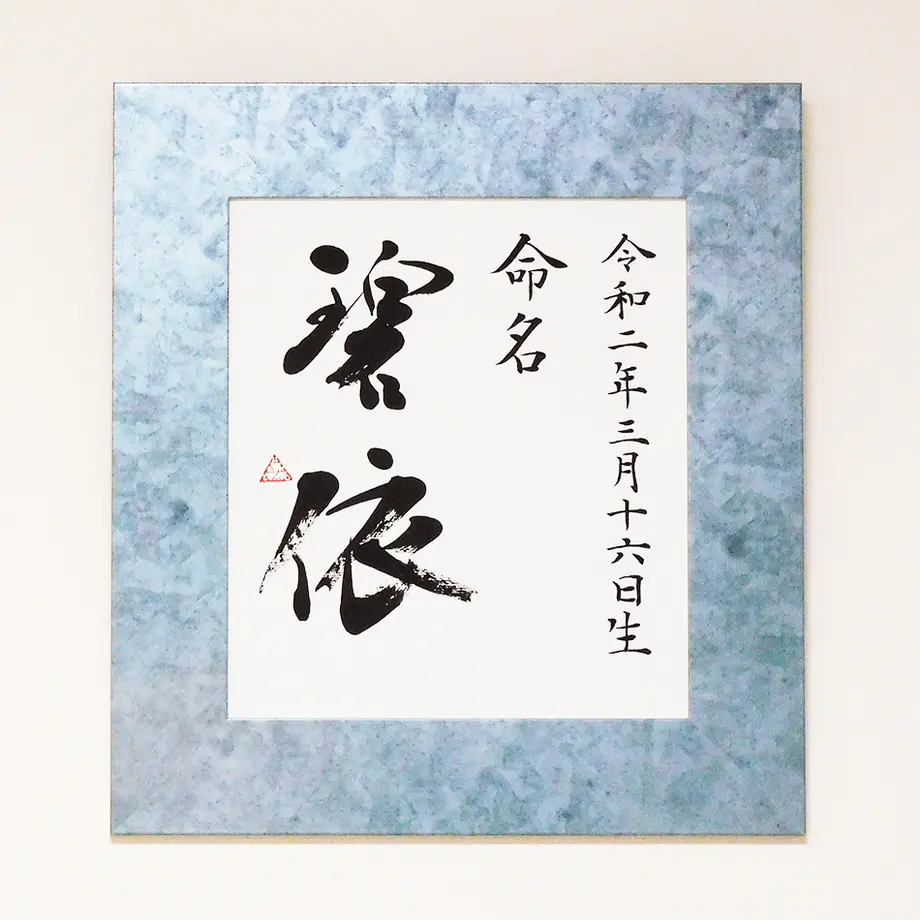 令和二年三月十六日生
命名
碧依